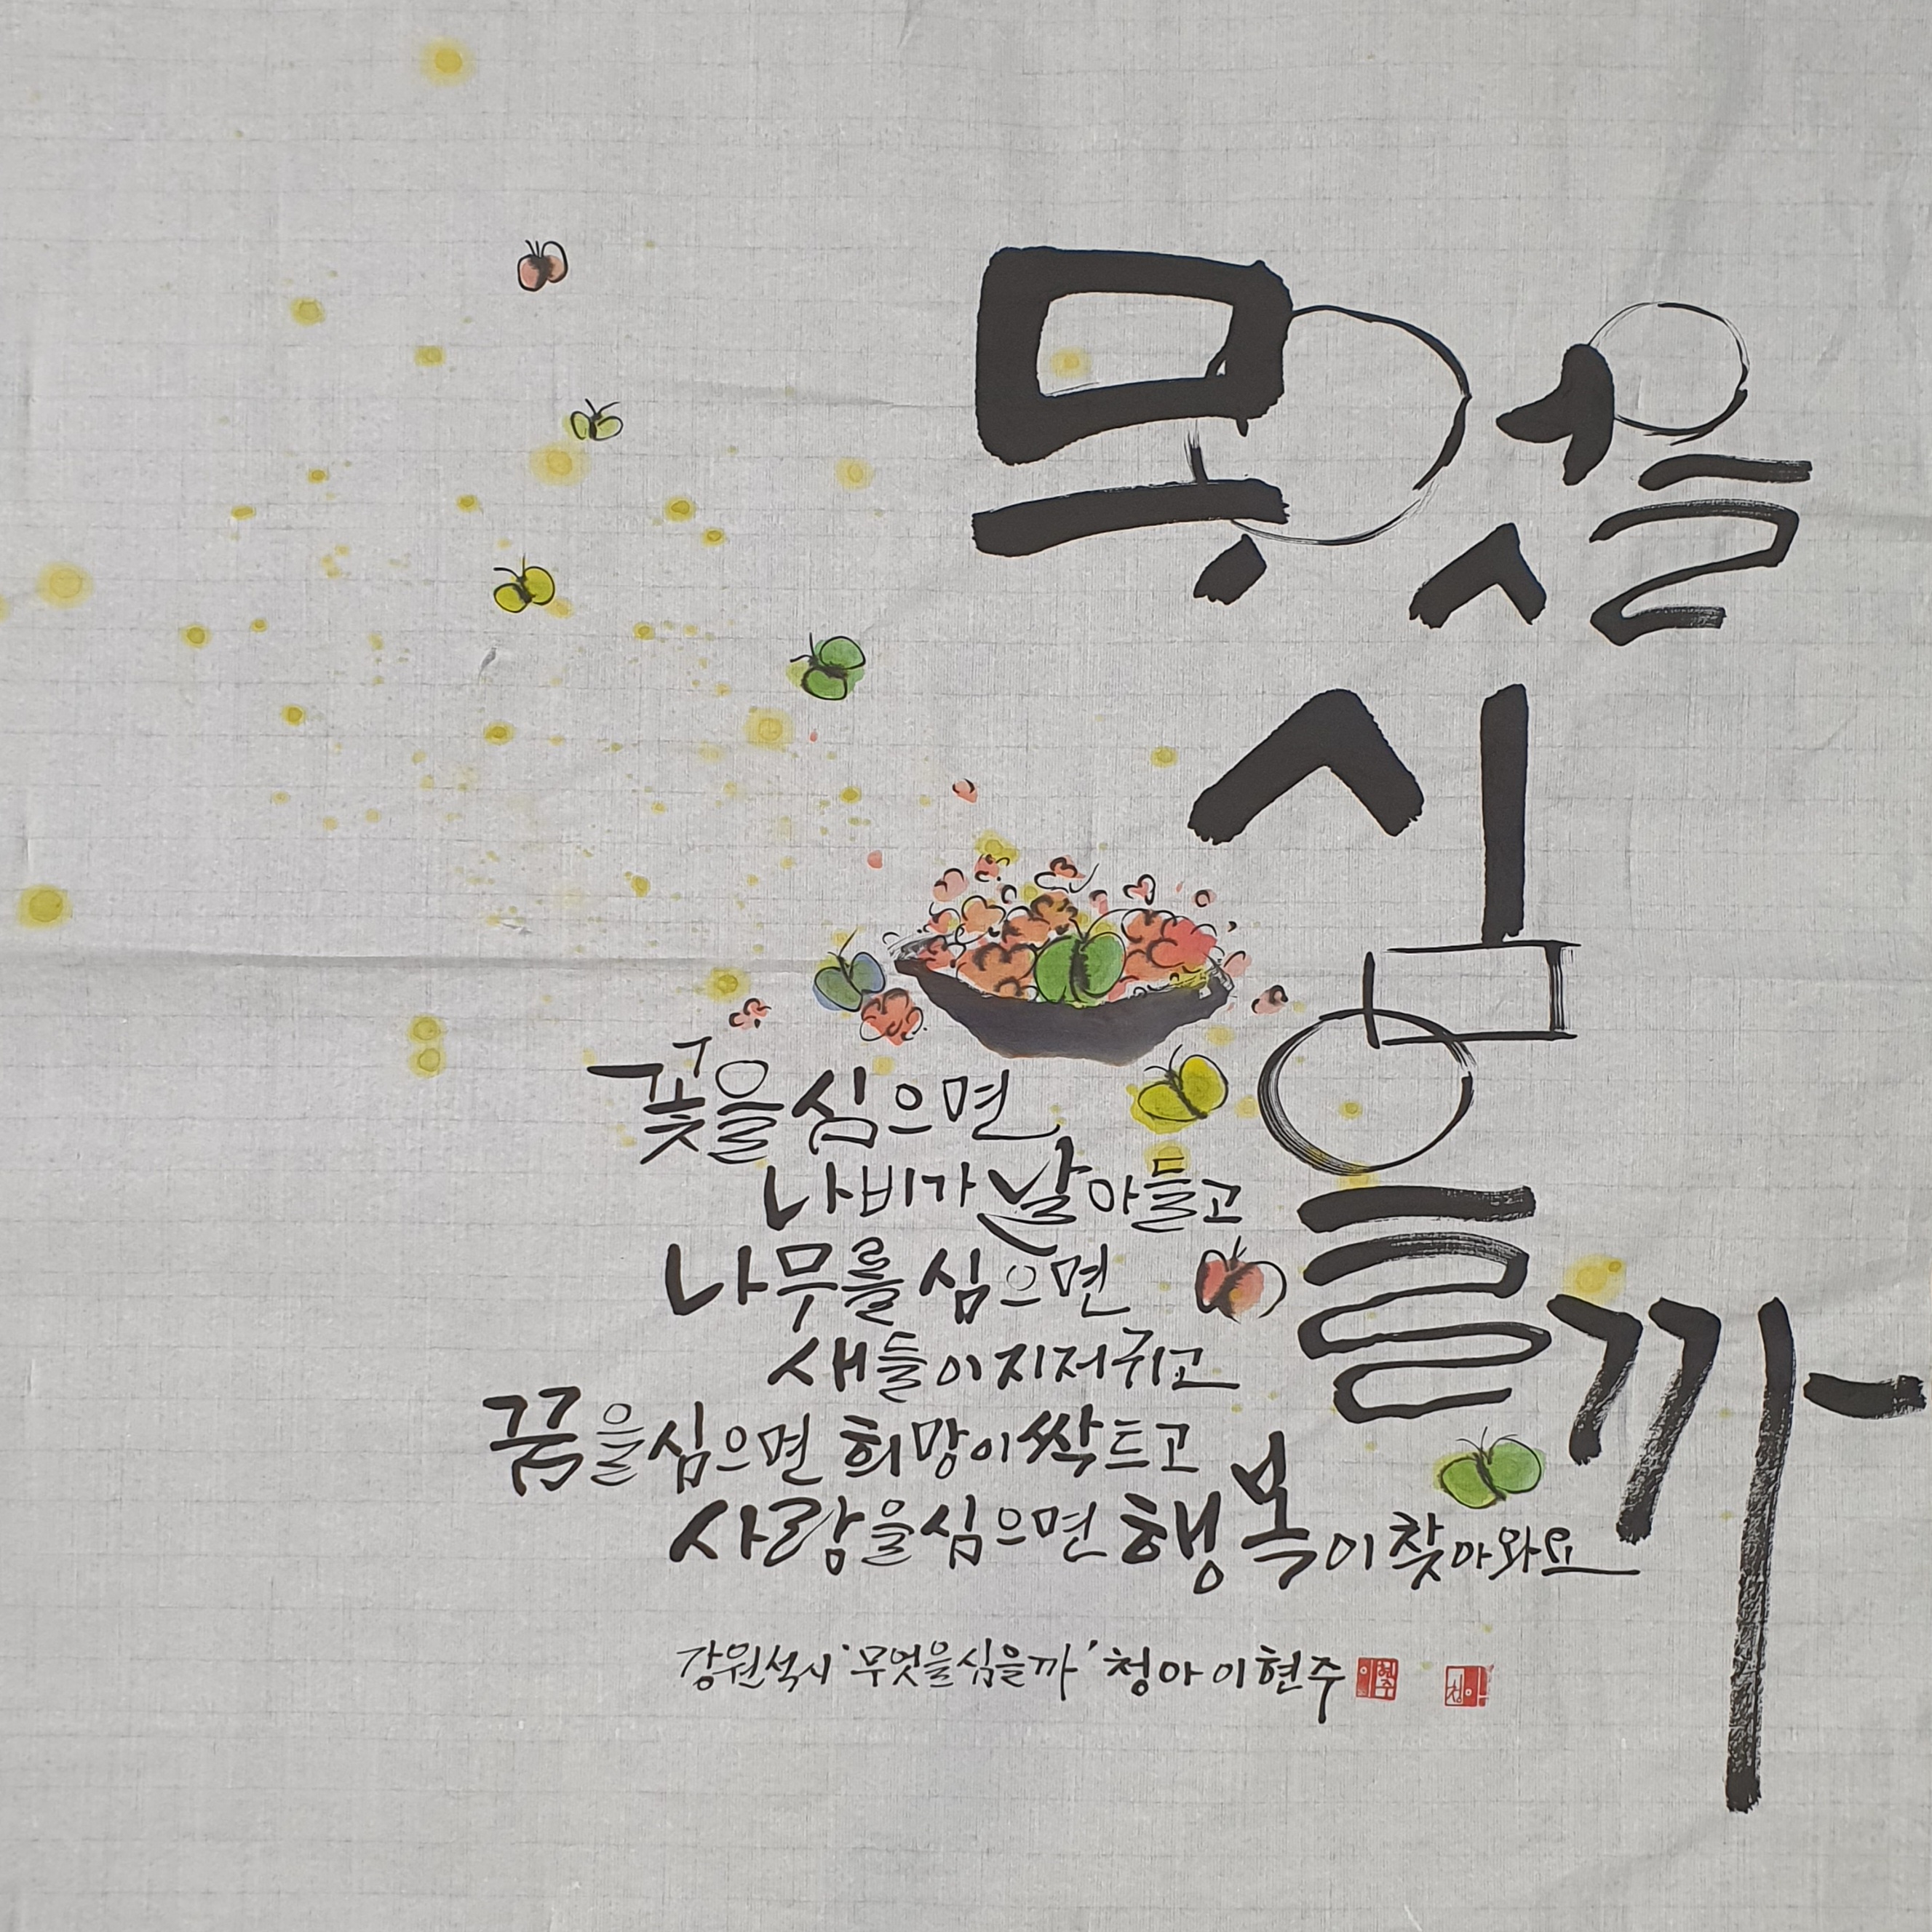 무엇을
심
을까
꽃을 심으면
나비가 날아들고
나무를 심으면
새들이 지저귀고
꿈을 심으면 희망이 싹트고
사랑을 심으면 행복이 찾아와요
강원석 시 '무엇을 심을까' 청아 이현주 이현주 청아